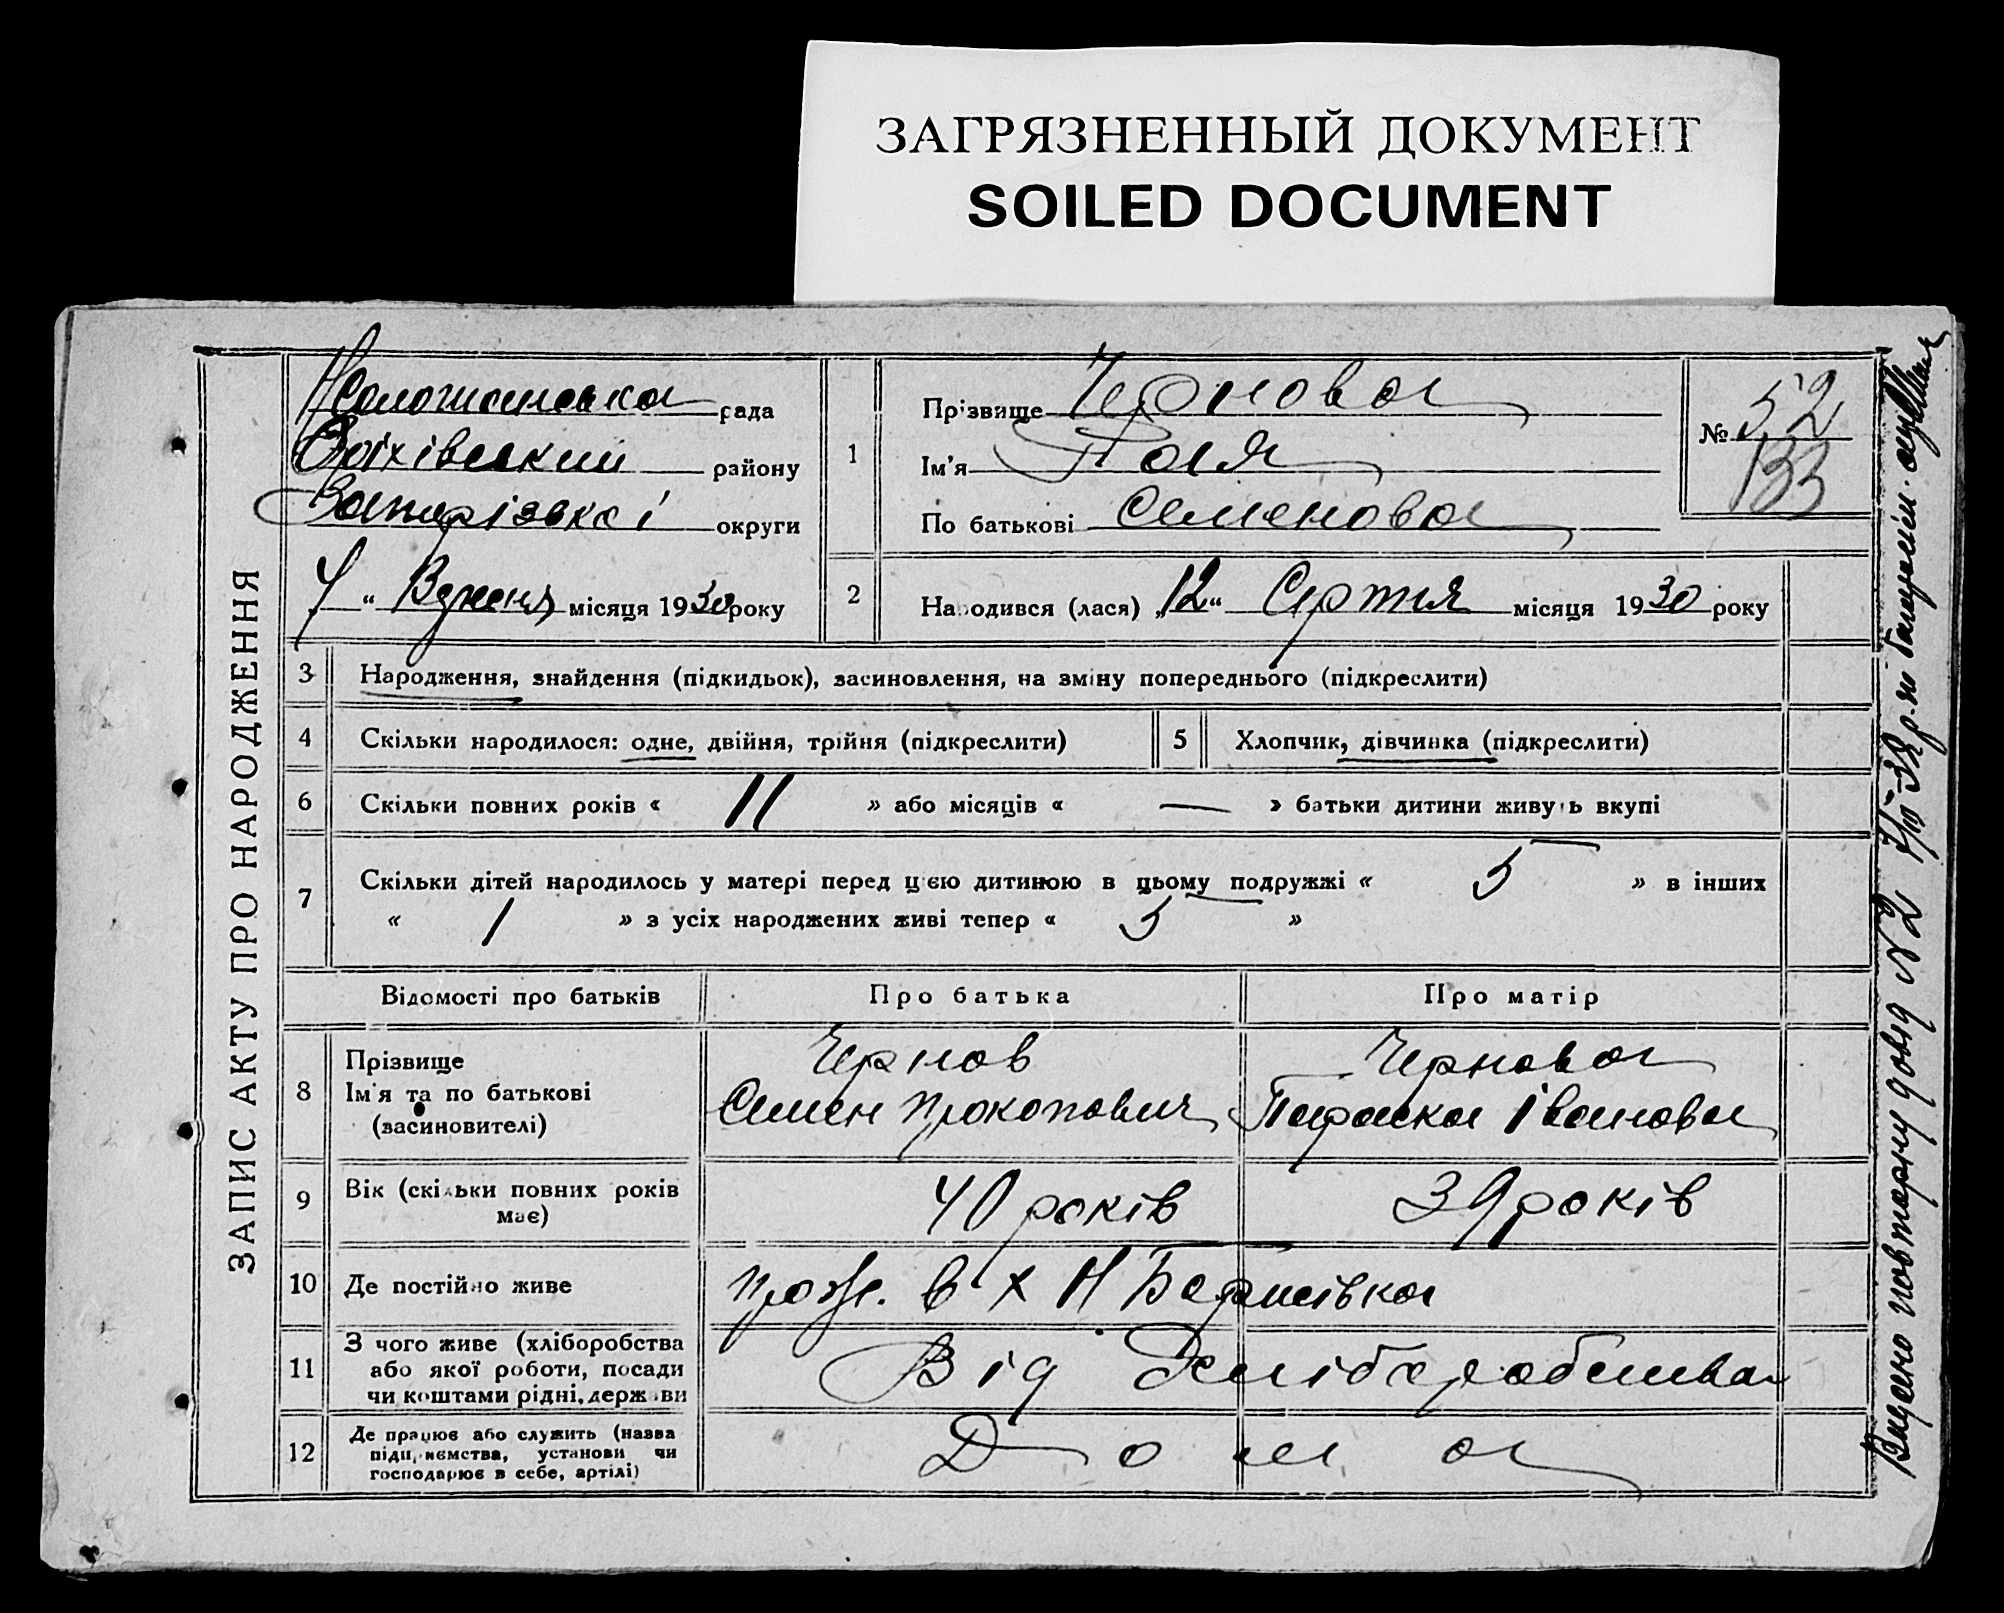 ЗАГРЯЗНЕННЫЙ ДОКУМЕНТ
SOILED DOCUMENT
ЗАПИС АКТУ ПРО НАРОДЖЕННЯ
рада
Оріхівський району
Запорізької округи
„ Вереня місяця 1930 року
1
Прізвище Чернова
Ім'я Поля
По батькові Семенова
№ 52
133
2
Народився (лася) „12“ Серпня місяця 1930 року
3 Народження, знайдення (підкидьок), засиновлення, на зміну попереднього (підкреслити)
4 Скільки народилося: одне, двійня, трійня (підкреслити)
5 Хлопчик, дівчинка (підкреслити)
6 Скільки повних років « 11 » або місяців « — » батьки дитини живуть вкупі
7 Скільки дітей народилось у матері перед цією дитиною в цьому подружжі « 5 » в інших
« 1 » з усіх народжених живі тепер « 5 »
Відомості про батьків Про батька Про матір
8 Прізвище
Ім'я та по батькові
(засиновителі)
Чернов
Семен Прокопович
Чернова
Параска Іванова
9 Вік (скільки повних років
має)
40 років 39 років
10 Де постійно живе
прож. в х Н
11 З чого живе (хліборобства
або якої роботи, посади
чи коштами рідні, держави
Від Хліборобства
12 Де працює або служить (назва
підприємства, установи чи
господарює в себе, артілі)
Дома
Видано повторну довід N 2